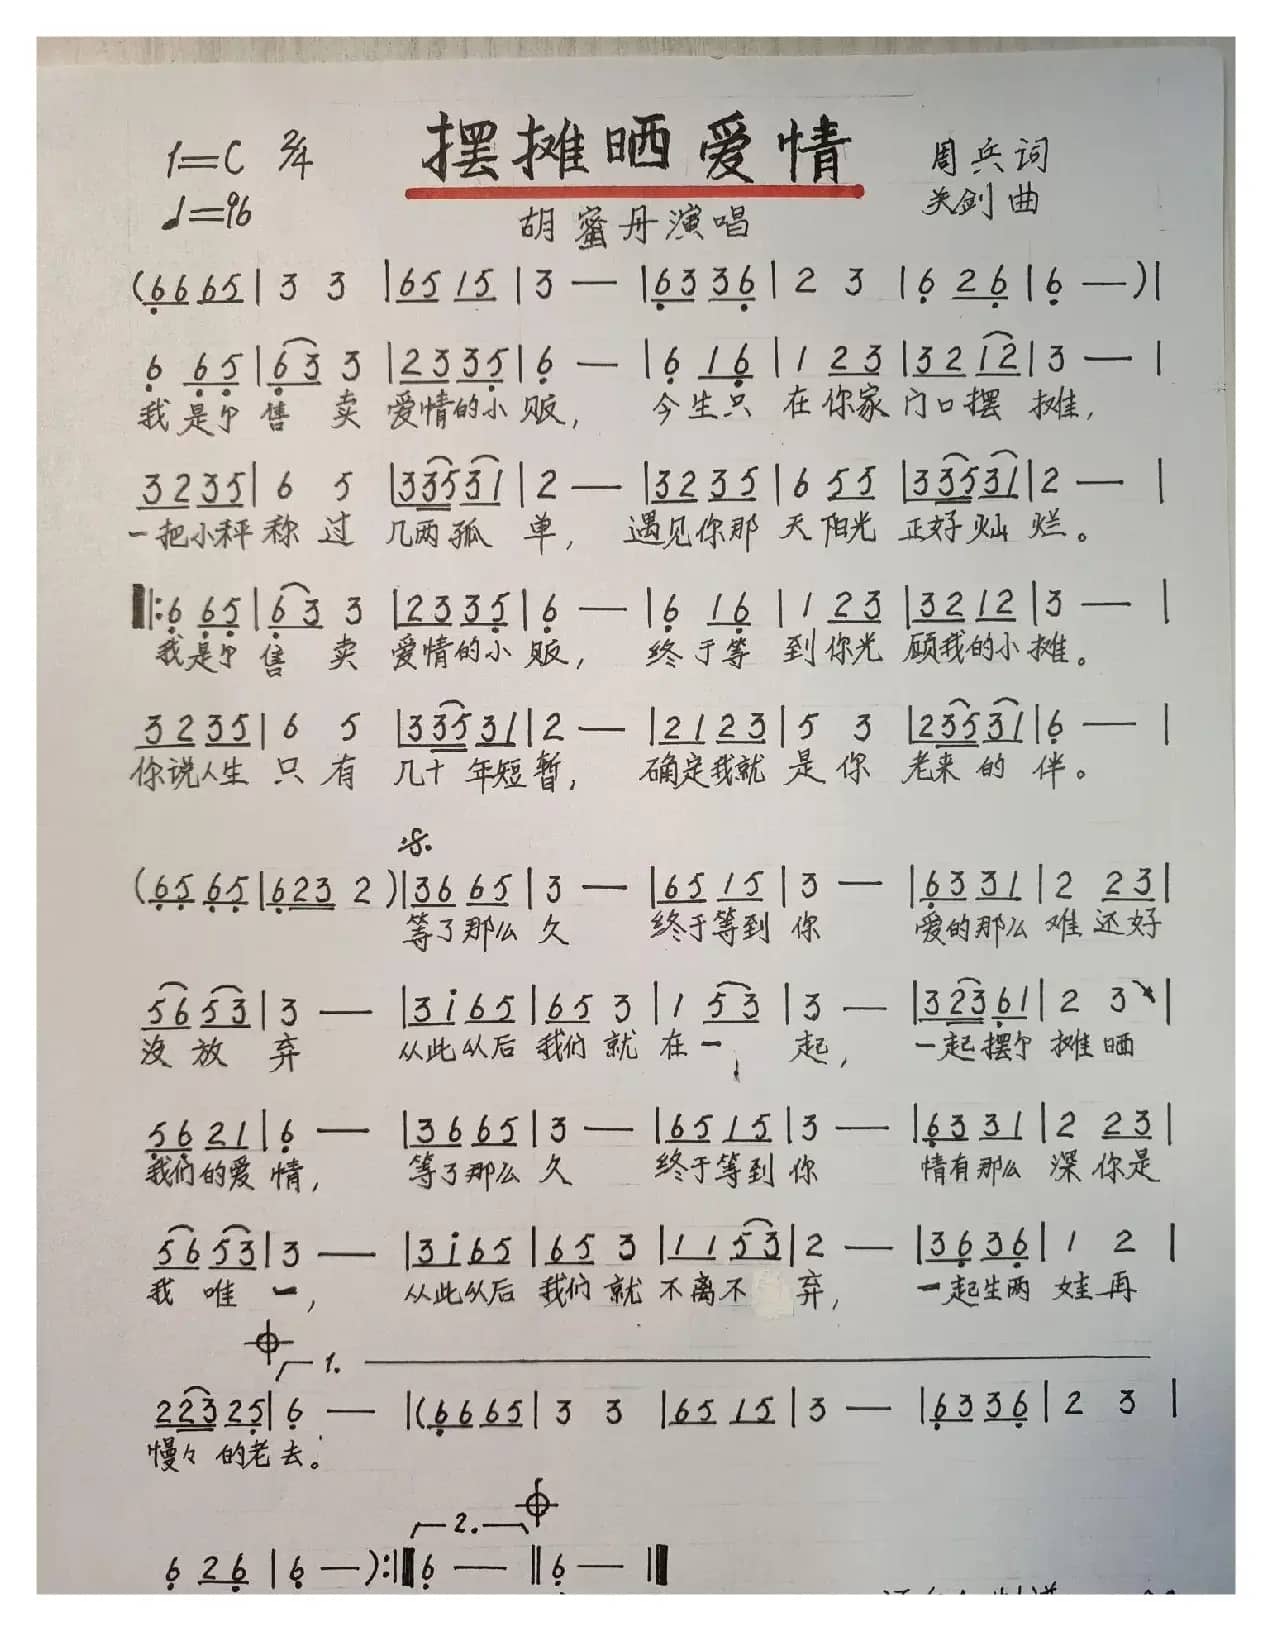 1=C 2/4 摆摊晒爱情 周兵词
♩=96 胡蜜丹演唱 关剑曲
(6̣6 65 | 3 3 | 65 15 | 3 — | 6̣3 36̣ | 2 3 | 6̣ 26̣ | 6̣ — ) |
6̣ 6̣5̣ | 6̣3 3 | 23 35̣ | 6̣ — | 6̣ 16̣ | 1 23 | 32 12 | 3 — |
我是个售卖爱情的小贩，今生只在你家门口摆摊，
32 35 | 6 5 | 335 31 | 2 — | 32 35 | 6 55 | 335 31 | 2 — |
一把小秤称过几两孤单，遇见你那天阳光正好灿烂。
‖: 6̣ 6̣5̣ | 6̣3 3 | 23 35̣ | 6̣ — | 6̣ 16̣ | 1 23 | 32 12 | 3 — |
我是个售卖爱情的小贩，终于等到你光顾我的小摊。
32 35 | 6 5 | 335 31 | 2 — | 21 23 | 5 3 | 235 31 | 6̣ — |
你说人生只有几十年短暂，确定我就是你老来的伴。
𝄋
(6̣5̣ 6̣5̣ | 6̣23 2 ) | 36 65 | 3 — | 65 15 | 3 — | 6̣3 31 | 2 23 |
等了那么久 终于等到你 爱的那么难还好
56 53 | 3 — | 3i 65 | 65 3 | 1 53 | 3 — | 323 6̣1 | 2 3 |
没放弃 从此从后我们就在一起，一起摆个摊晒
5̣6̣ 21 | 6̣ — | 36 65 | 3 — | 65 15 | 3 — | 6̣3 31 | 2 23 |
我们的爱情，等了那么久 终于等到你 情有那么深你是
56 53 | 3 — | 3i 65 | 65 3 | 11 53 | 2 — | 36̣ 36̣ | 1 2 |
我唯一，从此从后我们就不离不弃，一起生两娃再
𝄌 1.
223 25̣ | 6̣ — | (6̣6 65 | 3 3 | 65 15 | 3 — | 6̣3 36̣ | 2 3 |
慢々的老去。
2. 𝄌
6̣ 26̣ | 6̣ — ) :‖ 6̣ — ‖ 6̣ — ‖